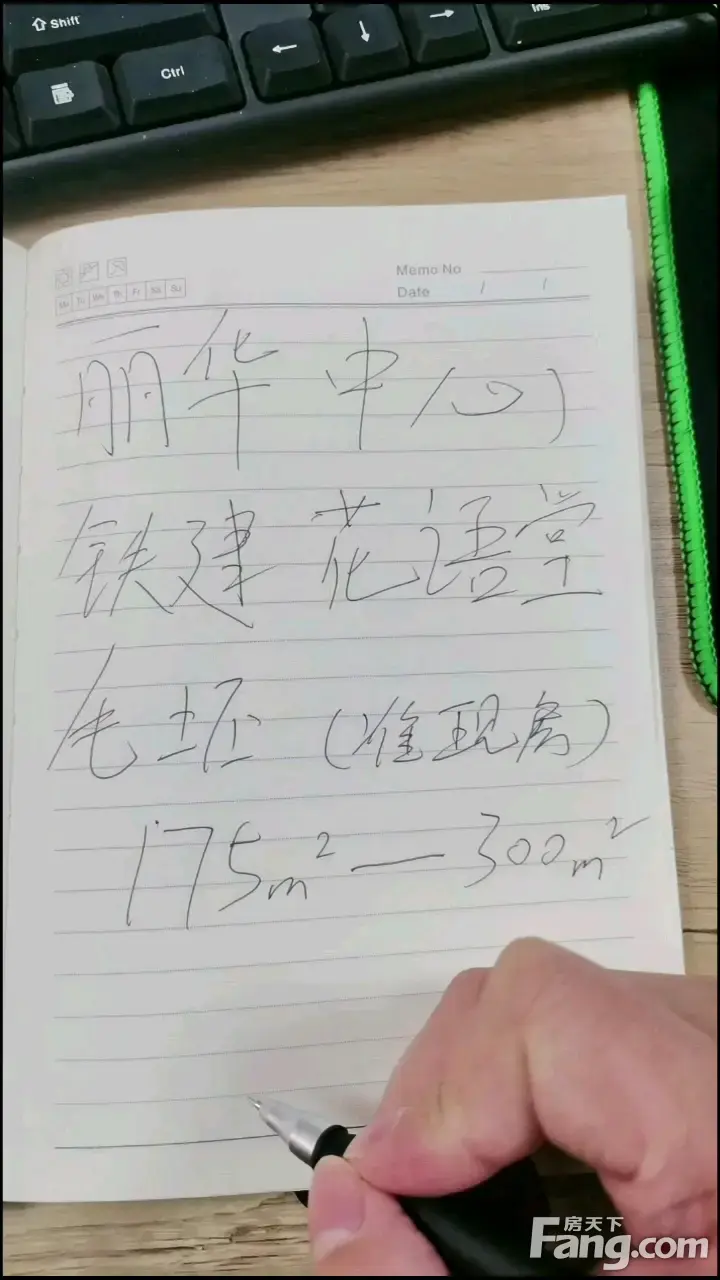 Shift
Ctrl
Ins
Memo No
Date / /
Mo Tu We Th Fr Sa Su
丽华 中心
铁建 花语堂
毛坯 (准现房)
175m² — 300m²
房天下
Fang.com